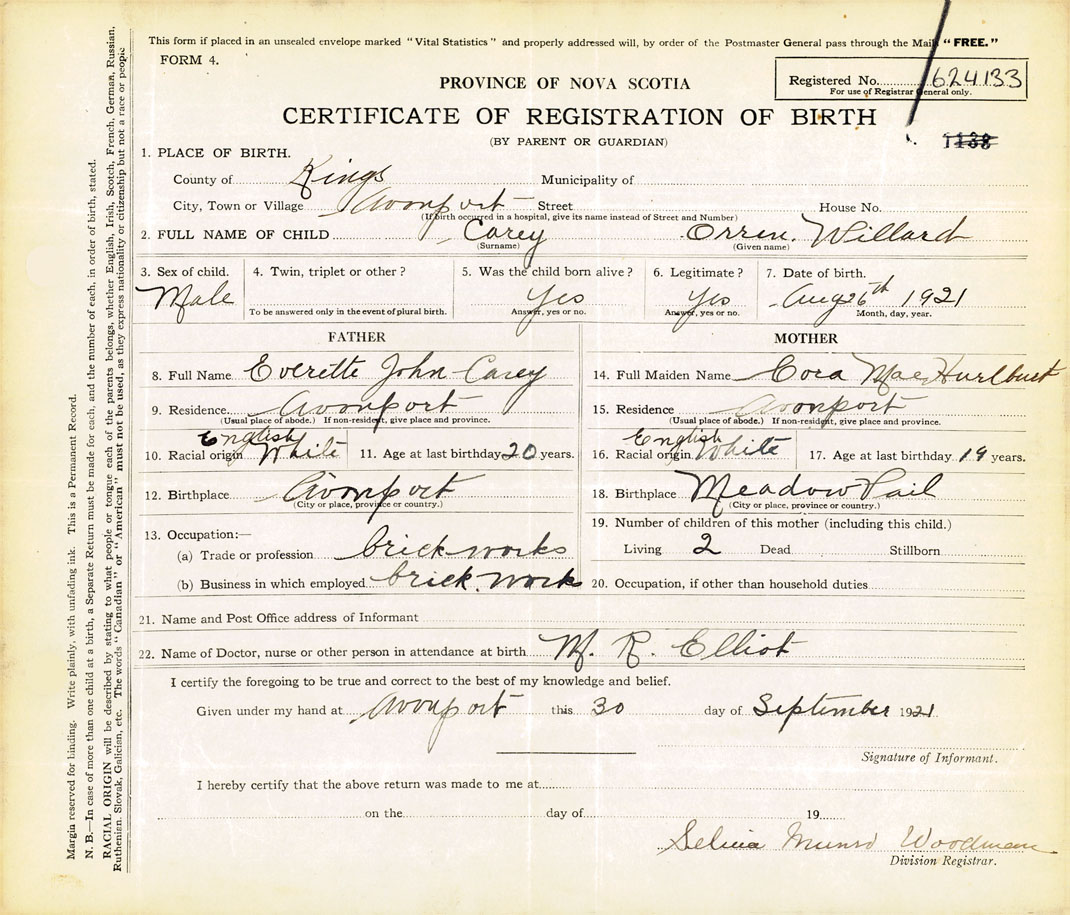 This form if placed in an unsealed envelope marked "Vital Statistics" and properly addressed will, by order of the Postmaster General pass through the Mail "FREE."
FORM 4.
Registered No. 1624133
For use of Registrar General only.
PROVINCE OF NOVA SCOTIA
CERTIFICATE OF REGISTRATION OF BIRTH
(BY PARENT OR GUARDIAN)
1138
1. PLACE OF BIRTH.
County of Kings Municipality of
City, Town or Village Avonport Street House No.
(If birth occurred in a hospital, give its name instead of Street and Number)
2. FULL NAME OF CHILD Carey Orren. Willard
(Surname) (Given name)
3. Sex of child. 4. Twin, triplet or other? 5. Was the child born alive? 6. Legitimate? 7. Date of birth.
Male Yes Yes Aug 26th 1921
To be answered only in the event of plural birth. Answer, yes or no. Answer, yes or no. Month, day, year.
FATHER
8. Full Name Everette John Casey
9. Residence. Avonport
(Usual place of abode.) If non-resident, give place and province.
English
10. Racial origin White 11. Age at last birthday 20 years.
12. Birthplace Avonport
(City or place, province or country.)
13. Occupation:—
(a) Trade or profession brick works
(b) Business in which employed brick. work
MOTHER
14. Full Maiden Name Cora Mae Hurlburt
15. Residence Avonport
(Usual place of abode.) If non-resident, give place and province.
English
16. Racial origin White 17. Age at last birthday 19 years.
18. Birthplace Meadow Vail
(City or place, province or country.)
19. Number of children of this mother (including this child.)
Living 2 Dead Stillborn
20. Occupation, if other than household duties
21. Name and Post Office address of Informant
22. Name of Doctor, nurse or other person in attendance at birth M. R. Elliot
I certify the foregoing to be true and correct to the best of my knowledge and belief.
Given under my hand at Avonport this 30 day of September 1921
Signature of Informant.
I hereby certify that the above return was made to me at
on the day of 19
Selina Munro Woodman
Division Registrar.
Margin reserved for binding. Write plainly, with unfading ink. This is a Permanent Record.
N. B.—In case of more than one child at a birth, a Separate Return must be made for each, and the number of each, in order of birth, stated.
RACIAL ORIGIN will be described by stating to what people or tongue each of the parents belongs, whether English, Irish, Scotch, French, German, Russian,
Ruthenian, Slovak, Galician, etc. The words "Canadian" or "American" must not be used, as they express nationality or citizenship but not a race or people